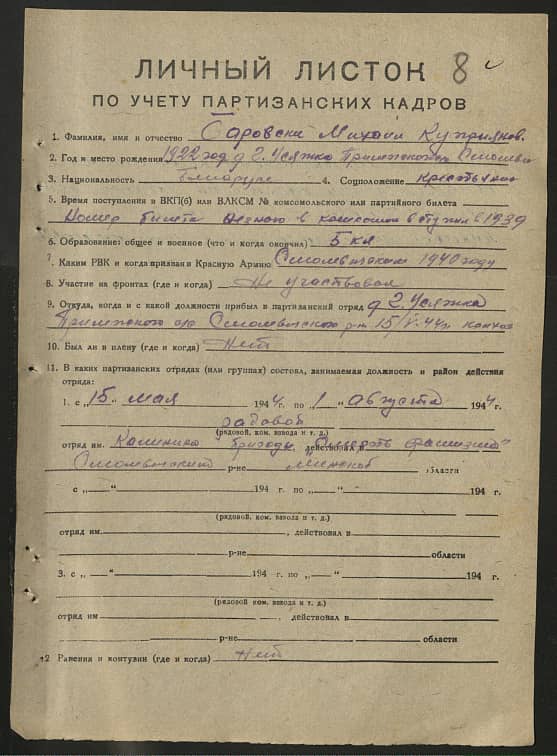 ЛИЧНЫЙ ЛИСТОК 8
ПО УЧЕТУ ПАРТИЗАНСКИХ КАДРОВ
1. Фамилия, имя и отчество Боровски Михаил Куприянов.
2. Год и место рождения 1922 год д 2. Усяжа
3. Национальность белорус 4. Соцположение
5. Время поступления в ВКП(б) или ВЛКСМ № комсомольского или партийного билета
Номер билета в комсомол вступил в 1939
6. Образование: общее и военное (что и когда окончил) 5 кл
7. Каким РВК и когда призван в Красную Армию 1940 году
8. Участие на фронтах (где и когда) Не участвовал
9. Откуда, когда и с какой должности прибыл в партизанский отряд д 2. Усяжа
с/с р-н 15/V-44г
10. Был ли в плену (где и когда) Нет
11. В каких партизанских отрядах (или группах) состоял, занимаемая должность и район действия
отряда:
1. с „15" мая 1944 г. по „1" августа 1944 г.
рядовой
(рядовой, ком. взвода и т. д.)
отряд им. Калинина бригады, действовал в „Смерть фашизму"
Смолевичский р-не Минской области
с „ " 194 г. по „ " 194 г.
(рядовой, ком. взвода и т. д.)
отряд им. , действовал в
р-не области
3. с „ " 194 г. по „ " 194 г.
(рядовой, ком. взвода и т. д.)
отряд им , действовал в
р-не области
12 Ранения и контузии (где и когда) нет